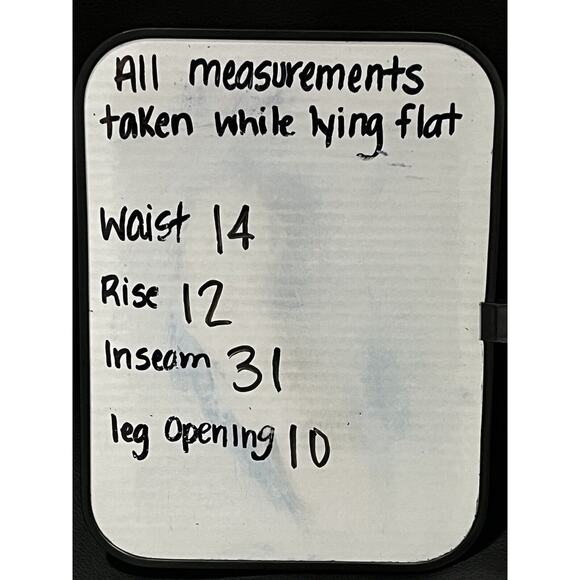 All measurements
taken while lying flat
Waist 14
Rise 12
Inseam 31
leg Opening 10